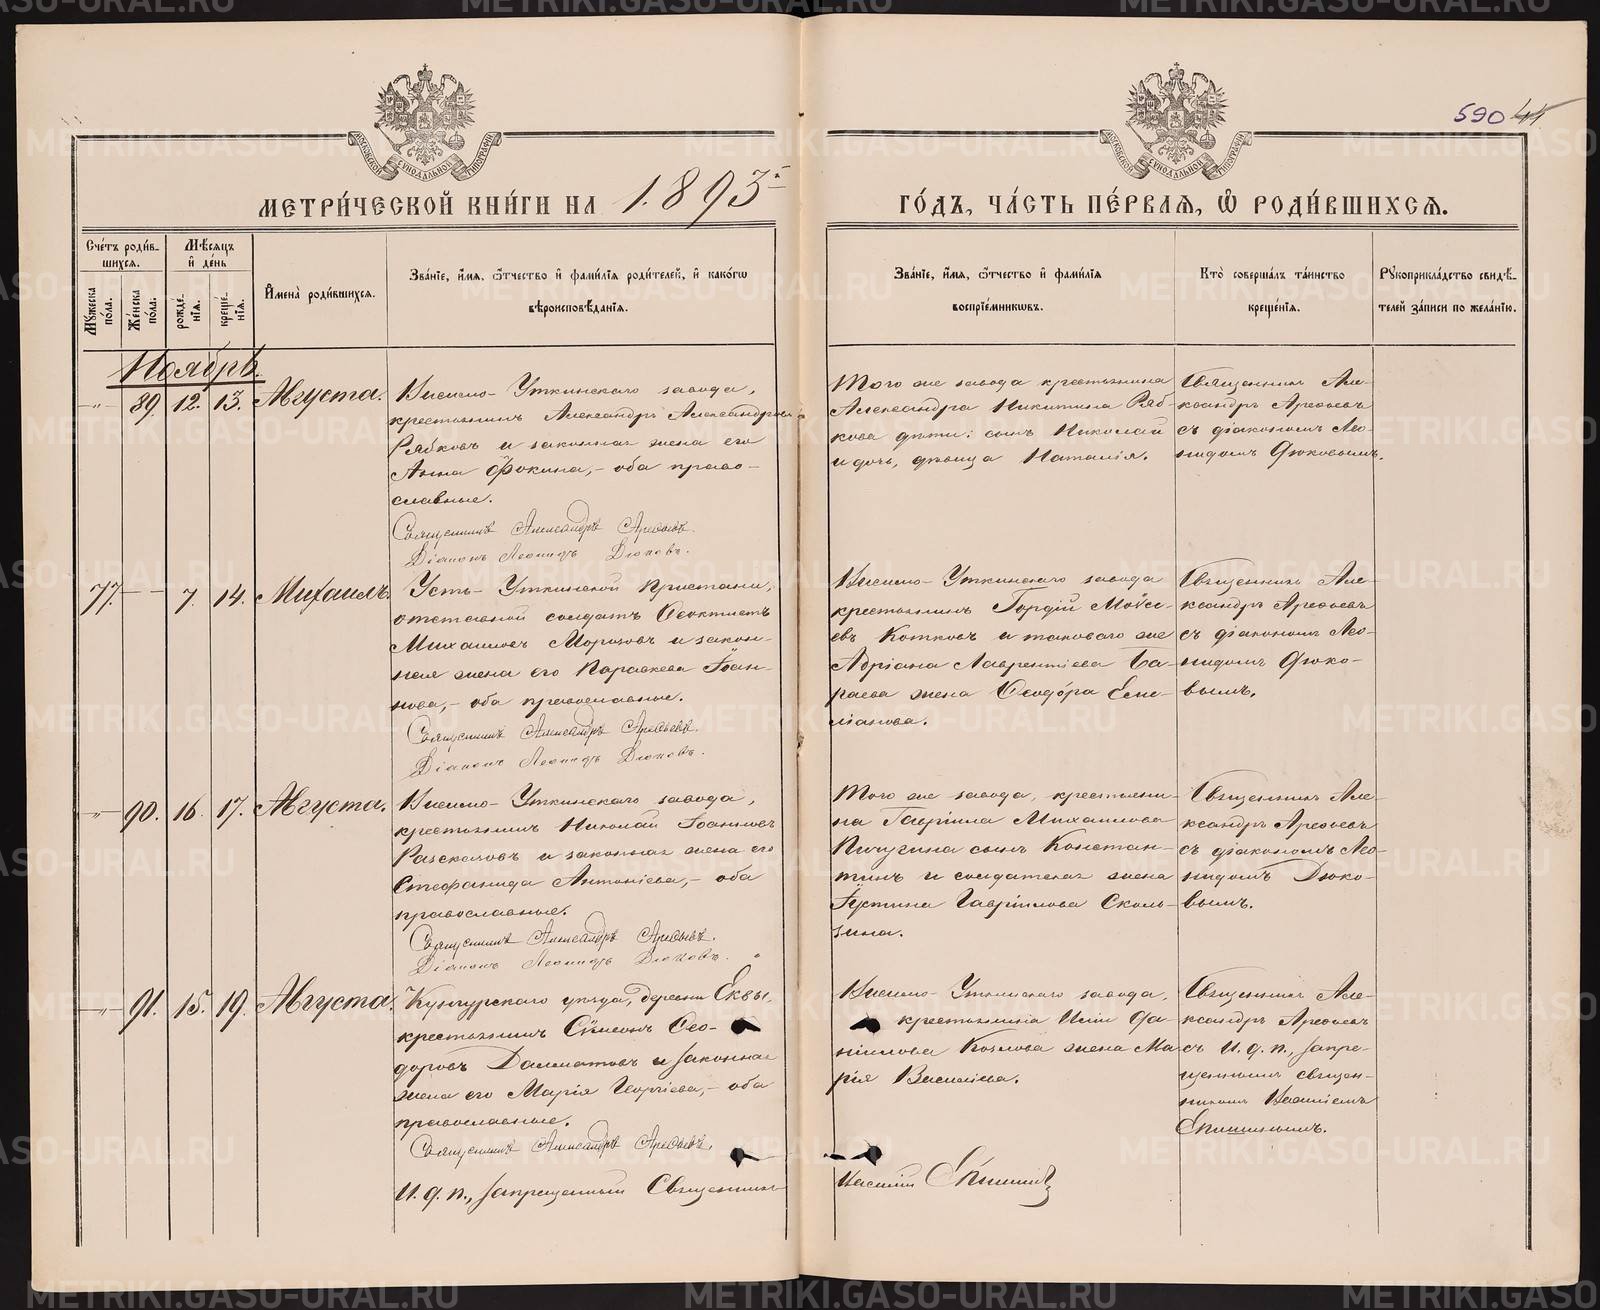 590
МОСКОВСКОЙ СѴНОДАЛЬНОЙ ТИПОГРАФІИ
МОСКОВСКОЙ СѴНОДАЛЬНОЙ ТИПОГРАФІИ
МЕТРИ́ЧЕСКОЙ КНИ́ГИ НА 1893
ГО́ДЪ, ЧА́СТЬ ПЕ́РВАЯ, Ѡ РОДИ́ВШИХСЯ.
Сче́тъ роди́в-
шихся.
Мѣ́сяцъ
и҆ де́нь
Мꙋ́жеска по́ла.
Же́нска по́ла.
рожде́-
нїя.
креще́-
нїя.
И҆мена̀ роди́вшихся.
Зва́нїе, и҆́мя, ѻ҆́тчество и҆ фами́лїя роди́телей, и҆ како́гѡ
вѣроисповѣ́данїя.
Зва́нїе, и҆́мя, ѻ҆́тчество и҆ фами́лїя
воспрїе́мникѡвъ.
Кто̀ соверша́лъ та́инство
креще́нїя.
Рꙋкоприкла́дство свидѣ́-
телей за́писи по жела́нїю.
Ноябрь.
-"- 89. 12. 13. Августа.
Висимо-Уткинскаго завода,
крестьянинъ Александръ Александровъ
Рябковъ и законная жена его
Анна Фокина,- оба право-
славные.
Священникъ Александръ Арефьевъ.
Діаконъ Леонидъ Дюковъ.
Того же завода крестьянина
Александра Никитина Ряб-
кова дѣти: сынъ Николай
и дочь, дѣвица Наталія.
Священникъ Але-
ксандръ Арефьевъ
съ діакономъ Лео-
нидомъ Дюковымъ.
77. - - 7. 14. Михаилъ.
Усть-Уткинской пристани,
отставной солдатъ Ѳеоктистъ
Михаиловъ Морозовъ и закон-
ная жена его Параскева Іоан-
нова,- оба православные.
Священникъ Александръ Арефьевъ.
Діаконъ Леонидъ Дюковъ.
Висимо-Уткинскаго завода
крестьянинъ Гордій Моѵсе-
евъ Котковъ и таковаго же
Адріана Лаврентіева Ба-
раева жена Ѳеодóра Еме-
ліанова.
Священникъ Але-
ксандръ Арефьевъ
съ діакономъ Лео-
нидомъ Дюко-
вымъ.
-"- 90. 16. 17. Августа.
Висимо-Уткинскаго завода,
крестьянинъ Николай Іоанновъ
Разсказовъ и законная жена его
Стефанида Антоніева,- оба
православные.
Священникъ Александръ Арефьевъ.
Діаконъ Леонидъ Дюковъ.
Того же завода, крестьяни-
на Гавріила Михаилова
Пичугина сынъ Констан-
тинъ и солдатская жена
Іустина Гавріилова Сколь-
зина.
Священникъ Але-
ксандръ Арефьевъ
съ діакономъ Лео-
нидомъ Дюко-
вымъ.
-"- 91. 15. 19. Августа.
Кунгурскаго уѣзда, деревни
крестьянинъ Сѵмеонъ Ѳео-
доровъ Далматовъ и законная
жена его Марія Георгіева,- оба
православные.
Священникъ Александръ Арефьевъ.
И. д. п., запрещенный Священникъ
Висимо-Уткинскаго завода,
крестьянина Иліи Да-
ніилова Козлова жена Ма-
рія Василіева.
Василій Епишинъ
Священникъ Але-
ксандръ Арефьевъ
съ и. д. п., запре-
щеннымъ священ-
никомъ Василіемъ
Епишинымъ.
METRIKI.GASO-URAL.RU